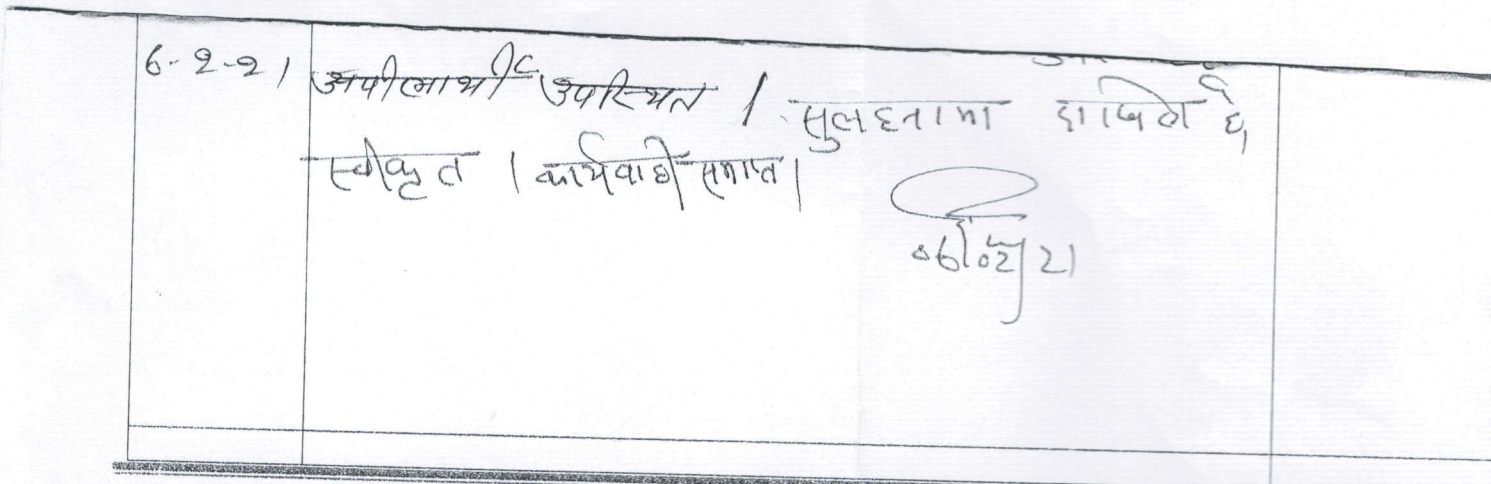 6-2-21 अपीलार्थी उपस्थित । सुलहनामा दाखिल है,
स्वीकृत । कार्यवाही समाप्त।
06/02/21